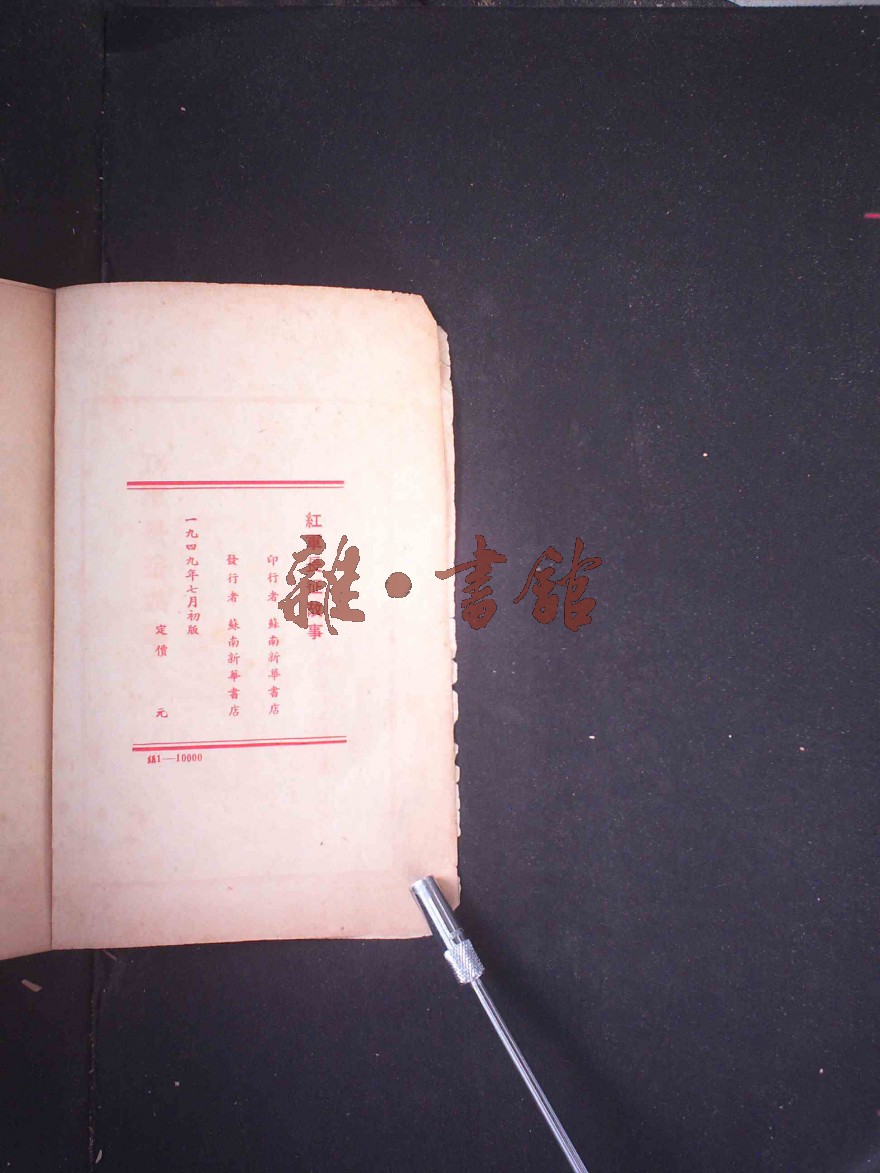 紅軍長征故事
印行者 蘇南新華書店
發行者 蘇南新華書店
一九四九年七月初版
定價 元
1—10000
雜·書館